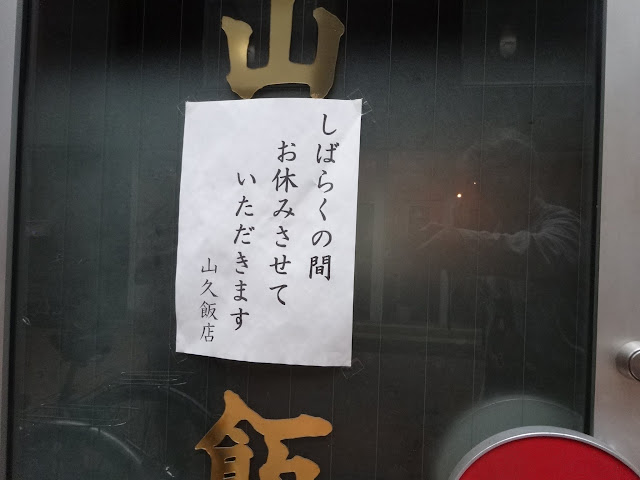 山
しばらくの間
お休みさせて
いただきます
山久飯店
飯